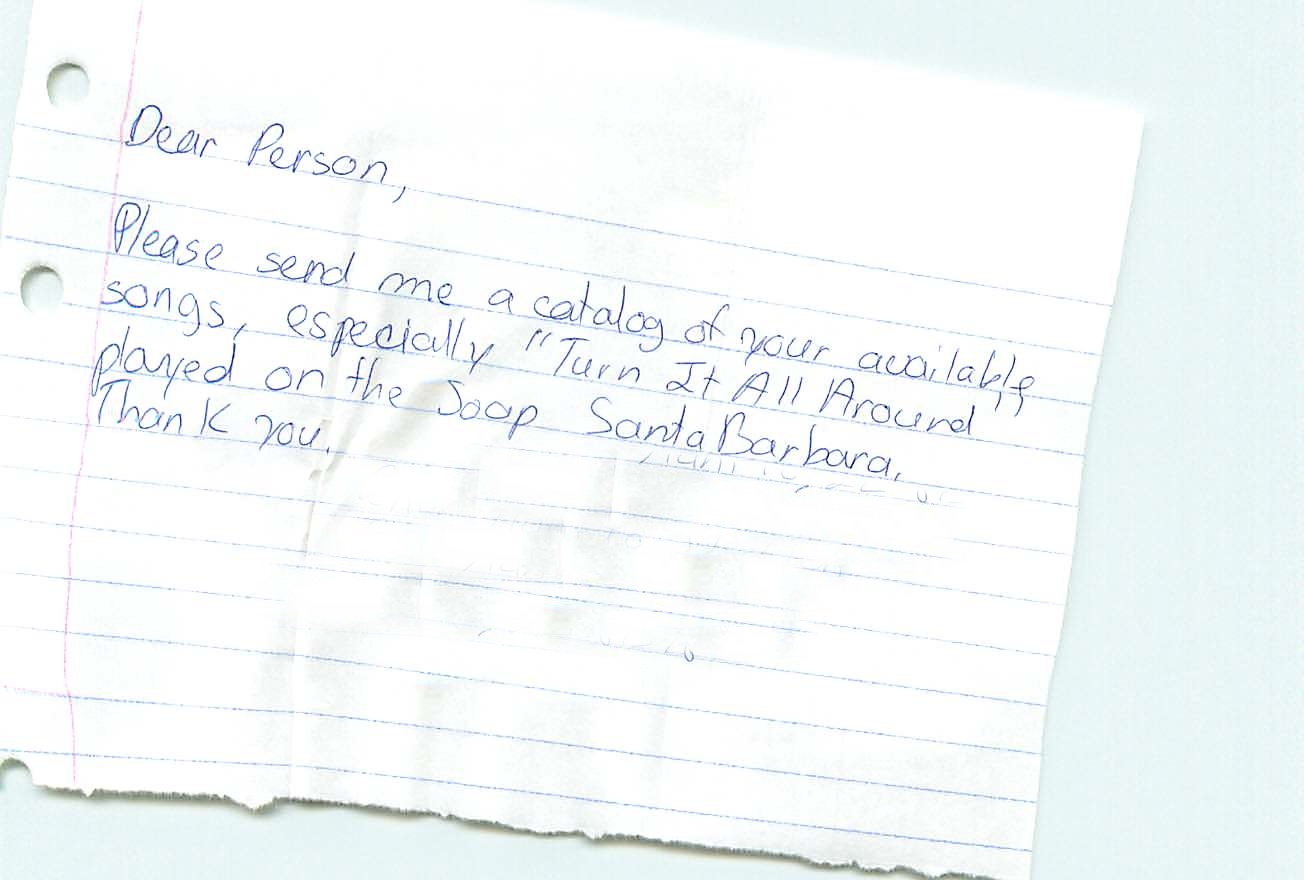 Dear Person,
Please send me a catalog of your available
songs, especially "Turn It All Around"
played on the Soap Santa Barbara.
Thank you.